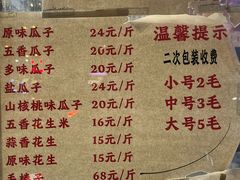 原味瓜子 24元/斤
五香瓜子 20元/斤
多味瓜子 20元/斤
盐瓜子 24元/斤
山核桃味瓜子 20元/斤
五香花生米 16元/斤
蒜香花生 15元/斤
原味花生 15元/斤
68元/斤
温馨提示
二次包装收费
小号2毛
中号3毛
大号5毛